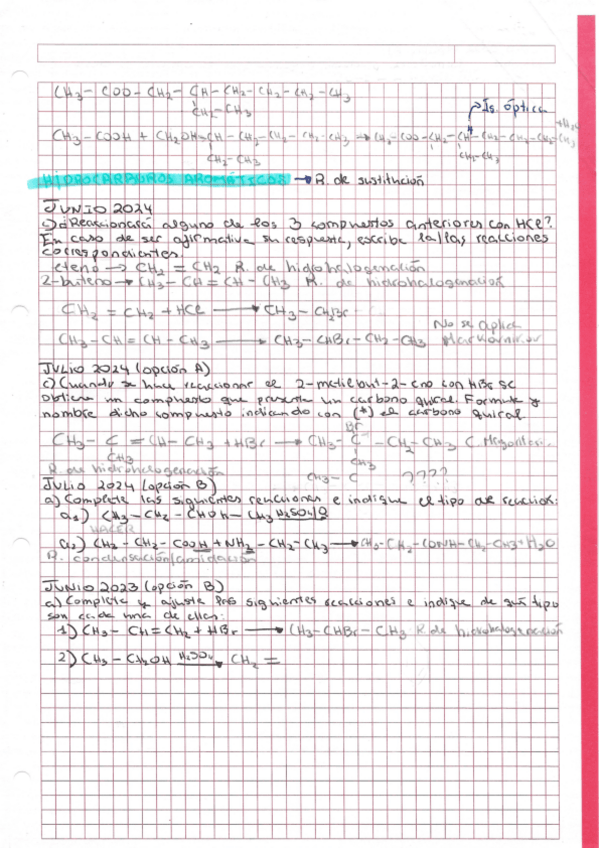 CH3 - COO - CH2 - CH - CH2 - CH2 - CH2 - CH3
CH2 - CH3
Is. óptica
CH3 - COOH + CH2OH - CH - CH2 - CH2 - CH2 - CH3 → CH3 - COO - CH2 - CH - CH2 - CH2 - CH2 - CH3
CH2 - CH3 CH2 - CH3
HIDROCARBUROS AROMÁTICOS → R. de sustitución
JUNIO 2024
¿Reaccionará alguno de los 3 compuestos anteriores con HCl?
En caso de ser afirmativa su respuesta, escribe la/las reacciones
correspondientes.
eteno → CH2 = CH2 R. de hidrohalogenación
2-buteno → CH3 - CH = CH - CH3 R. de hidrohalogenación
CH2 = CH2 + HCl → CH3 - CH2Br
No se aplica
CH3 - CH = CH - CH3 → CH3 - CHBr - CH2 - CH3 Markovnikov
JULIO 2024 (opción A)
c) Cuando se hace reaccionar el 2-metilbut-2-eno con HBr se
obtiene un compuesto que presenta un carbono quiral. Formule y
nombre dicho compuesto indicando con (*) el carbono quiral.
Br
CH3 - C = CH - CH3 + HBr → CH3 - C - CH2 - CH3 C.
CH3 CH3
R. de hidrohalogenación CH3 - C ????
JULIO 2024 (opción B)
a) Complete las siguientes reacciones e indique el tipo de reacción:
a1) CH3 - CH2 - CHOH - CH3 H2SO4/Q
HACER
a2) CH2 - CH2 - COOH + NH2 - CH2 - CH3 → CH3 - CH2 - CONH - CH2 - CH3 + H2O
R. condensación/amidación
JUNIO 2023 (opción B)
a) Complete y ajuste las siguientes reacciones e indique de qué tipo
son cada una de ellas:
1) CH3 - CH = CH2 + HBr → CH3 - CHBr - CH3 R. de hidrohalogenación
2) CH3 - CH2OH H2SO4 → CH2 =